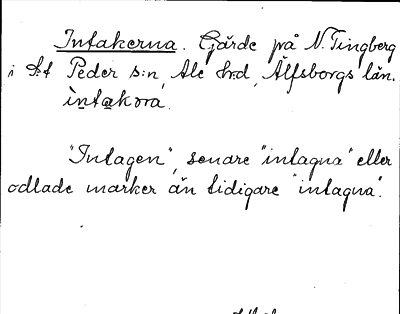 Intakerna. Gärde på N. Tingberg
i S:t Peder s:n, Ale h:d, Älfsborgs län.
ìntakora.
"Intagen", senare "intagna" eller
odlade marker än tidigare "intagna".